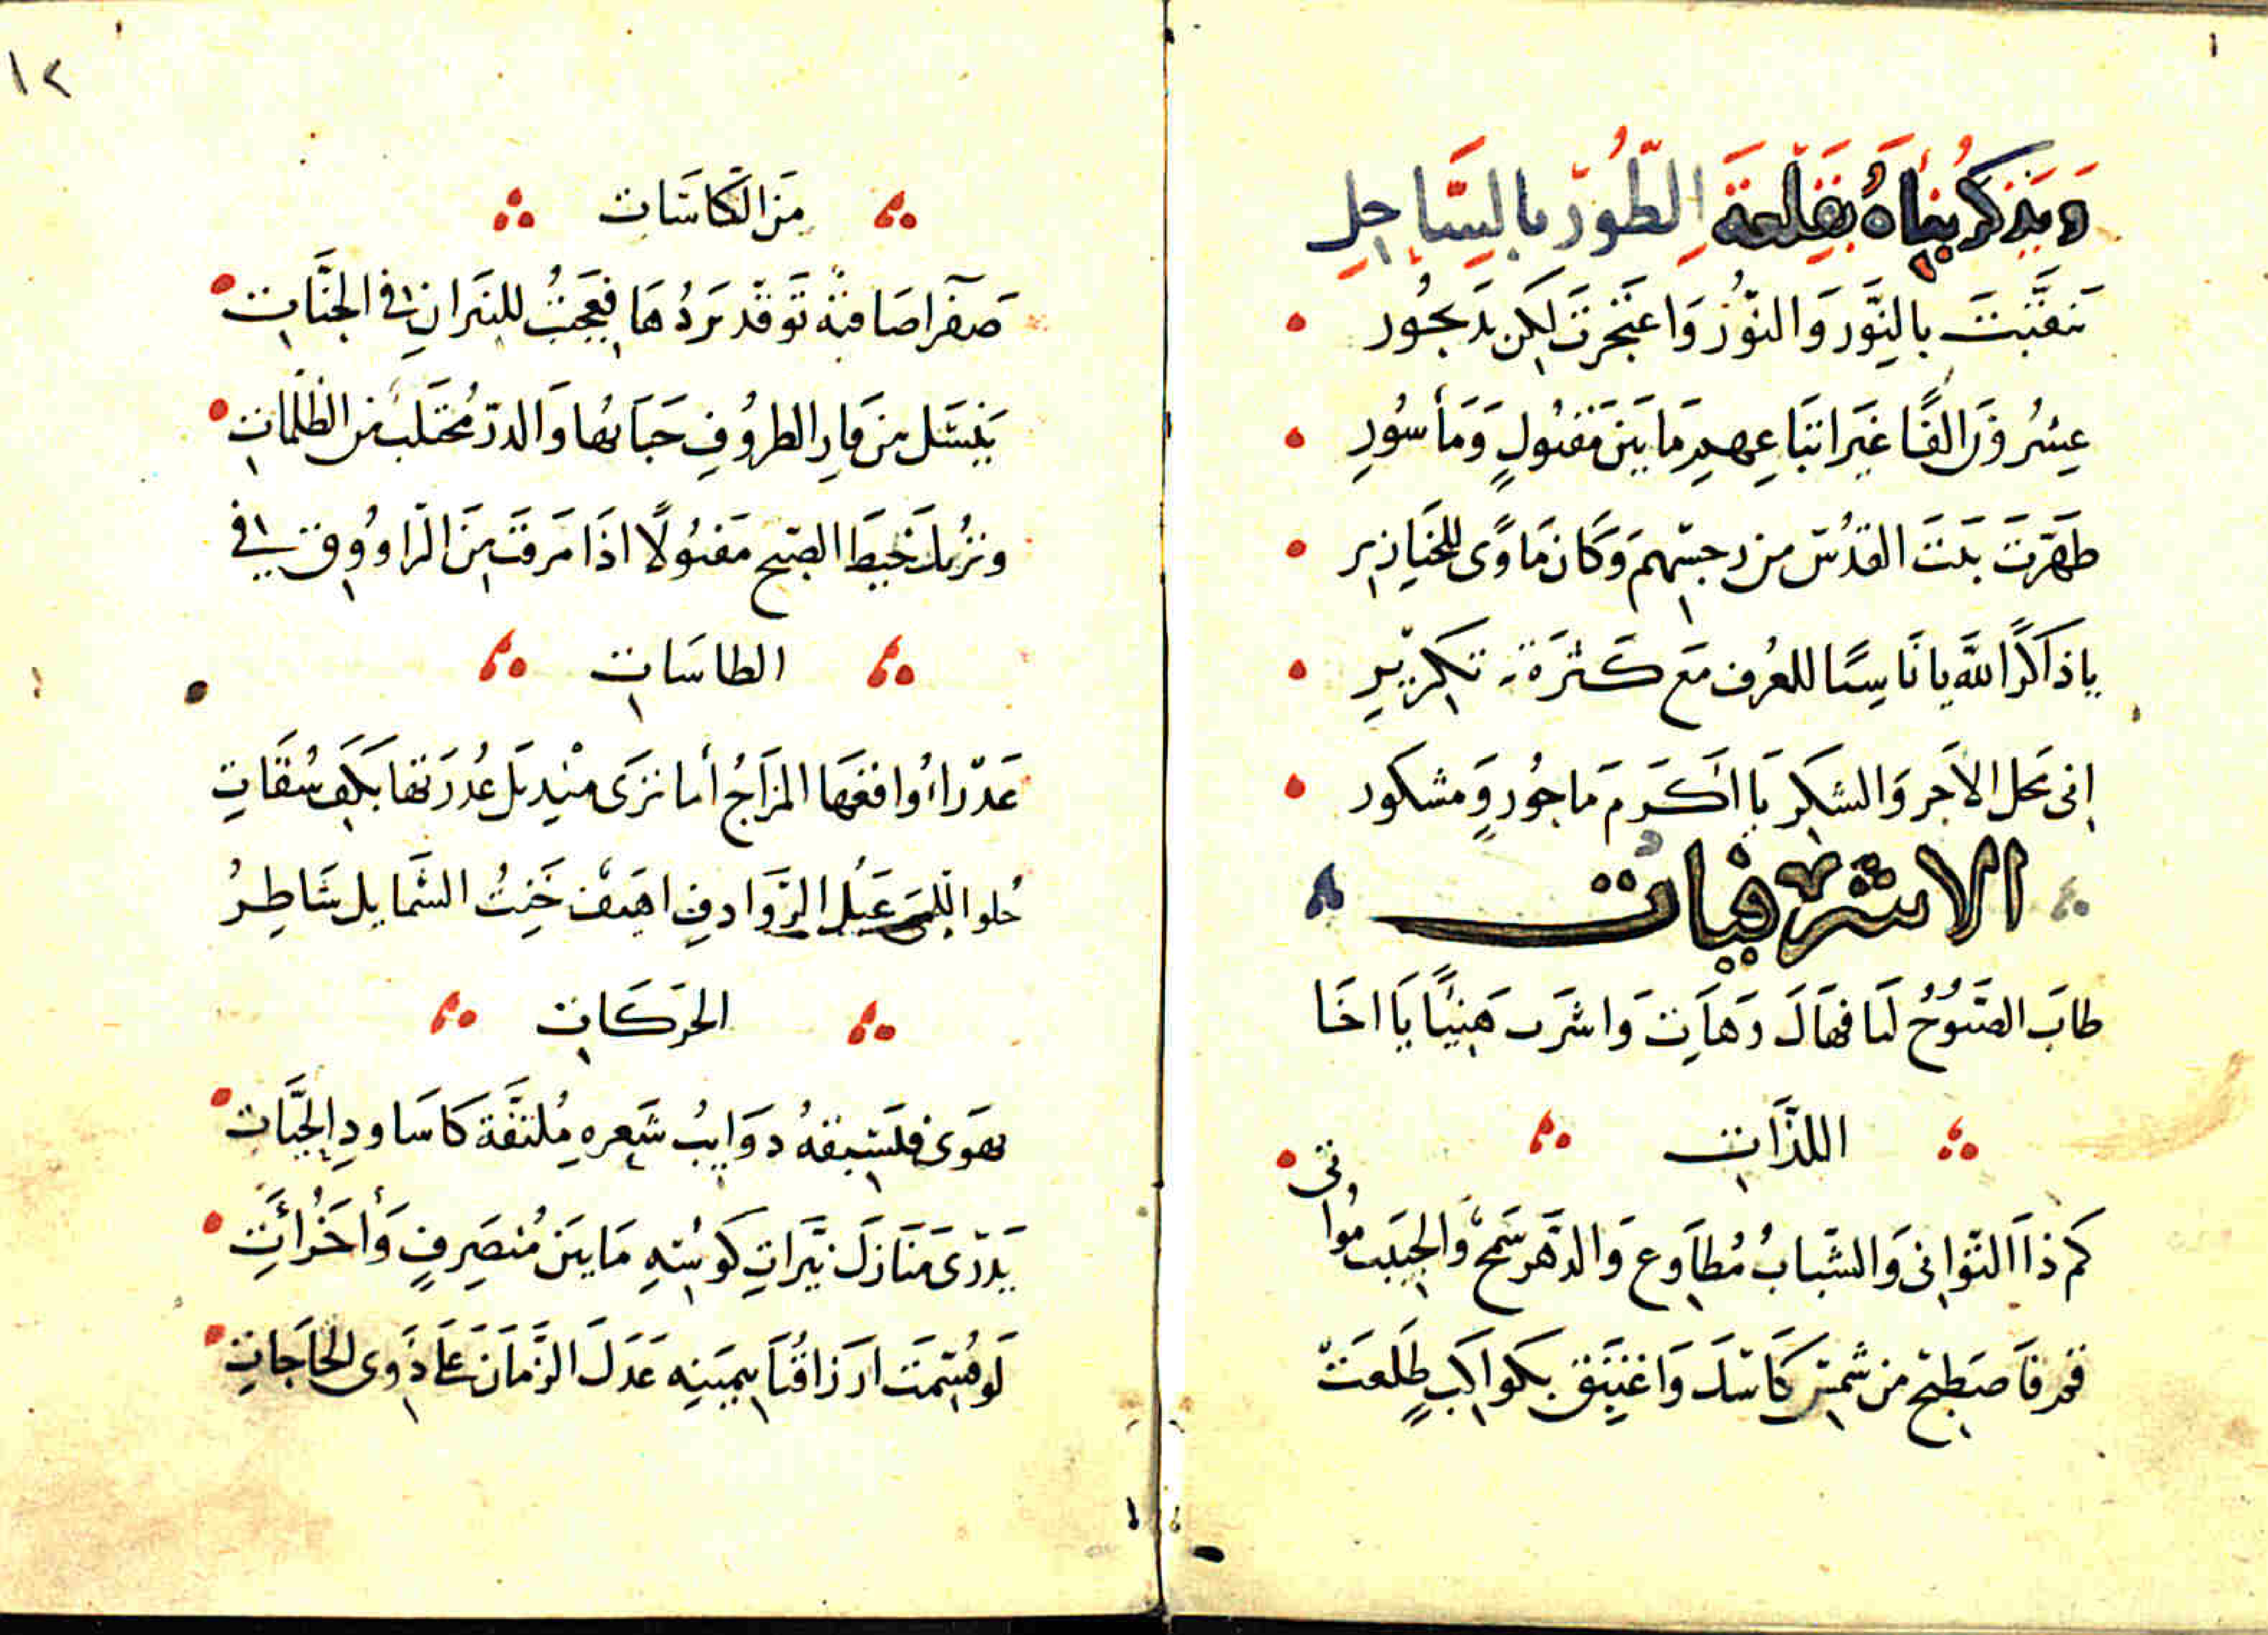 وَيَذكُر بِنَاهُ بقَلعة الطُور بالسَّاحِلِ
تنقَّبتَ بالنَّور وَالنوُّر وَاعتَجَرتَ لكن بَدَيجُور
عِشرُونَ الفًا غَير اتبَاعِهِم مَا بَين مَقتُولٍ وَمَأسُورِ
طهَّرتَ بَيتَ القدُس من رجسهم وَكَان مَاوًى للخنازير
يا ذاكرًا لله يا نَاسِيًا للعُرف مَع كَثرَة تكريرِ
انى محل الاَجر وَالشكر يَا اَكرَم مَاجُورٍ وَمشكور
الاشرفيات
طابَ الصَّبُوُحُ لنا فهَاكَ وَهَاتِ وَاشرَب هَنيًا يَا اخَا
اللذَّاتِ
كم ذا التوانى وَالشَّبابُ مُطاوع وَالدَّهر سَمح وَالحبيَب مُوا
تى
قم فَاصطبح من شمس كَاسك وَاغتبق بكواكبٍ طَلعَت
١٢
مِنَ الكَاسَاتِ
صَفرا صَافيةً تَوقّد بَردُهَا فعَجبتُ للنيرَانِ فى الجنَّاتِ
يَنسَل مِن قارِ الظروُفِ حَبَابُها وَالدرّ مُجتلبٌ من الظلمَاتِ
وتريك خَيطَ الصبح مَفتُولًا اذَا مَرقَت مِنَ الرَاووُق فى
الطاسَاتِ
عَذرا وَاقعَهَا المزَاجُ أما ترَى منْديَل عُذرَتها بكَف سُقَاتِ
حُلو اللمى عَبل الرَّوَادفِ اهيَف خَنِثُ الشمَايل شَاطِرُ
الحَركَاتِ
يهوَى فتَسبقهُ دوَايبُ شَعرِهِ مُلتفَّة كَاسَاودِ الحَيَّاتِ
يَدرى مَنَازلَ نيّرَاتِ كوسهِ مَا بَين مُنصَرِفٍ وَأخَرُ اَتِ
لَو قسّمَت ارزاقُنا بيَمينِه عَدَلَ الزَّمَانُ عَلى ذَوى الحاجَاتِ